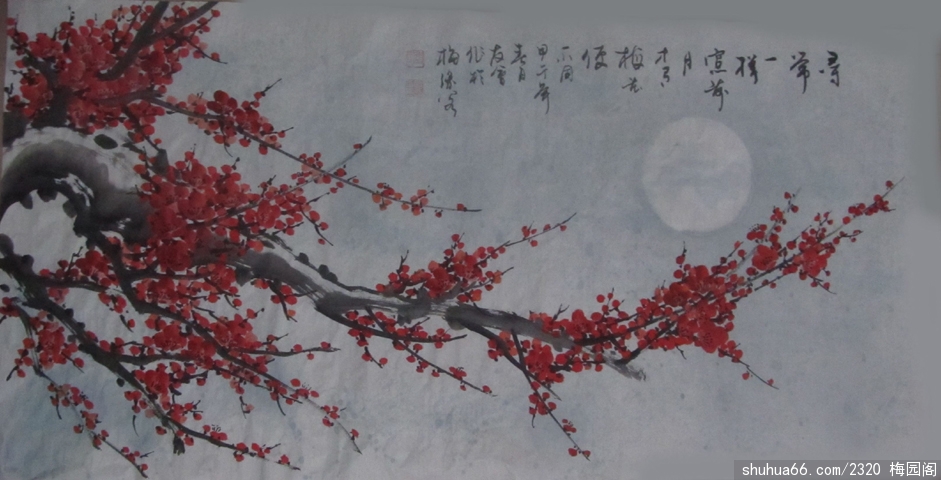 尋
常
一
样
窗前
月
才有
梅花
便
不同
甲午年
春月
作於
梅
shuhua66.com/2320 梅园阁